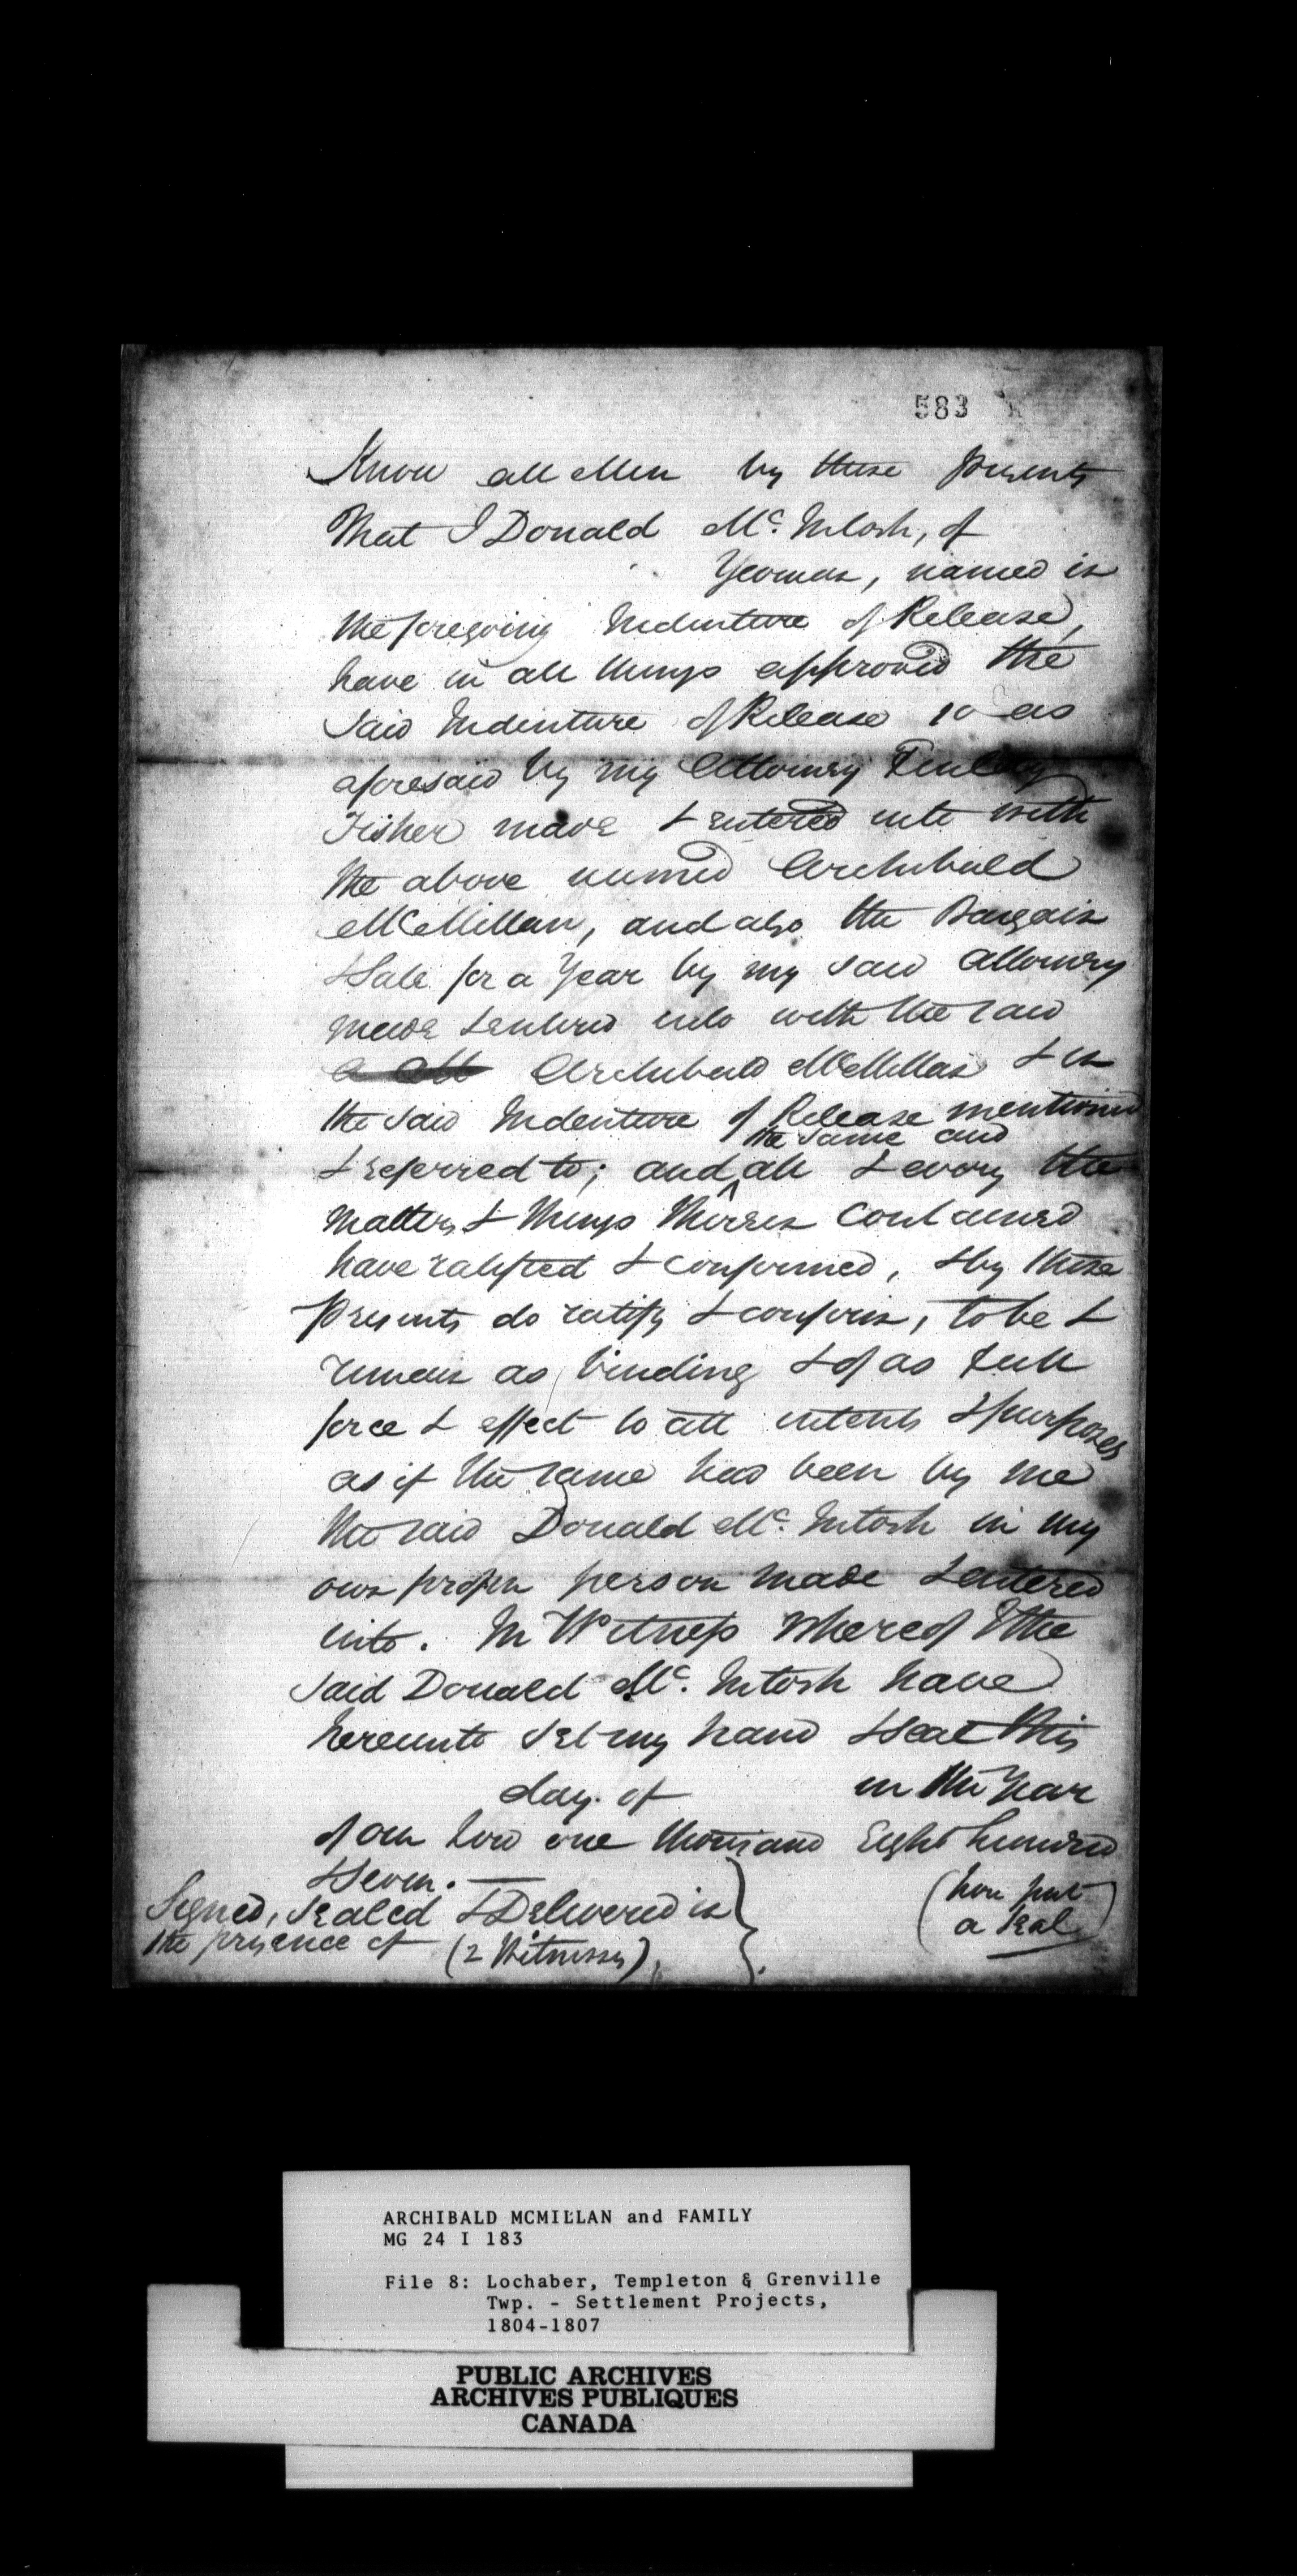 583
Know all Men by these presents
That I Donald Mc. Intosh, of
Yeoman, named in
the foregoing Indenture of Release,
have in all things approved the
said Indenture of Release so as
aforesaid by my Attorney Finlay
Fisher made & entered into with
the above named Archibald
McMillan, and also the Bargain
& Sale for a Year by my said Attorney
made & entered into with the said
Archibald McMillan & in
the said Indenture of Release mentioned
the same and
& referred to; and all & every the
matters & things therein contained
have ratified & confirmed, & by these
presents do ratify & confirm, to be &
remain as binding & of as full
force & effect to all intents & purposes
as if the same had been by me
the said Donald Mc. Intosh in my
own proper person made & entered
into. In Witness whereof I the
said Donald Mc. Intosh have
hereunto set my hand & seal this
day of in the Year
of our Lord one thousand Eight hundred
& seven.
Signed, sealed & Delivered in
the presence of (2 Witnesses)
(here put
a seal)
ARCHIBALD MCMILLAN and FAMILY
MG 24 I 183
File 8: Lochaber, Templeton & Grenville
Twp. - Settlement Projects,
1804-1807
PUBLIC ARCHIVES
ARCHIVES PUBLIQUES
CANADA